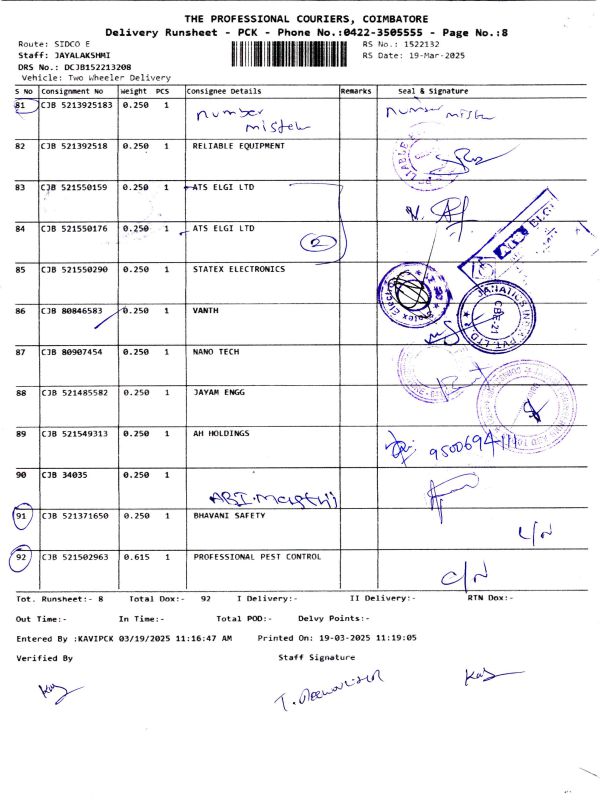 THE PROFESSIONAL COURIERS, COIMBATORE
Delivery Runsheet - PCK - Phone No.:0422-3505555 - Page No.:8
Route: SIDCO E RS No.: 1522132
Staff: JAYALAKSHMI RS Date: 19-Mar-2025
DRS No.: DCJB152213208
Vehicle: Two Wheeler Delivery
S No Consignment No Weight PCS Consignee Details Remarks Seal & Signature
81 CJB 5213925183 0.250 1 number number
82 CJB 521392518 0.250 1 RELIABLE EQUIPMENT
83 CJB 521550159 0.250 1 ATS ELGI LTD
84 CJB 521550176 0.250 1 ATS ELGI LTD 2
85 CJB 521550290 0.250 1 STATEX ELECTRONICS
86 CJB 80846583 0.250 1 VANTH JANATICS INDIA PVT. LTD. CBE-21
87 CJB 80907454 0.250 1 NANO TECH
88 CJB 521485582 0.250 1 JAYAM ENGG
89 CJB 521549313 0.250 1 AH HOLDINGS
90 CJB 34035 0.250 1
91 CJB 521371650 0.250 1 BHAVANI SAFETY L/N
92 CJB 521502963 0.615 1 PROFESSIONAL PEST CONTROL C/N
Tot. Runsheet:- 8 Total Dox:- 92 I Delivery:- II Delivery:- RTN Dox:-
Out Time:- In Time:- Total POD:- Delvy Points:-
Entered By :KAVIPCK 03/19/2025 11:16:47 AM Printed On: 19-03-2025 11:19:05
Verified By Staff Signature